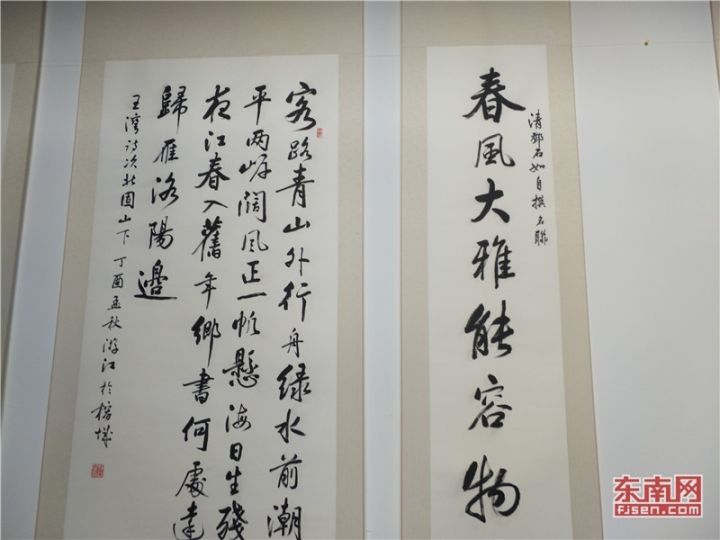 清鄧石如自撰名聯
春風大雅能容物
客路青山外行舟绿水前潮
平两岸阔風正一帆懸海日生殘
夜江春入舊年鄉書何處達
歸雁洛陽邊
王灣詩次北固山下 丁酉孟秋游江於榕城
东南网
fjsen.com